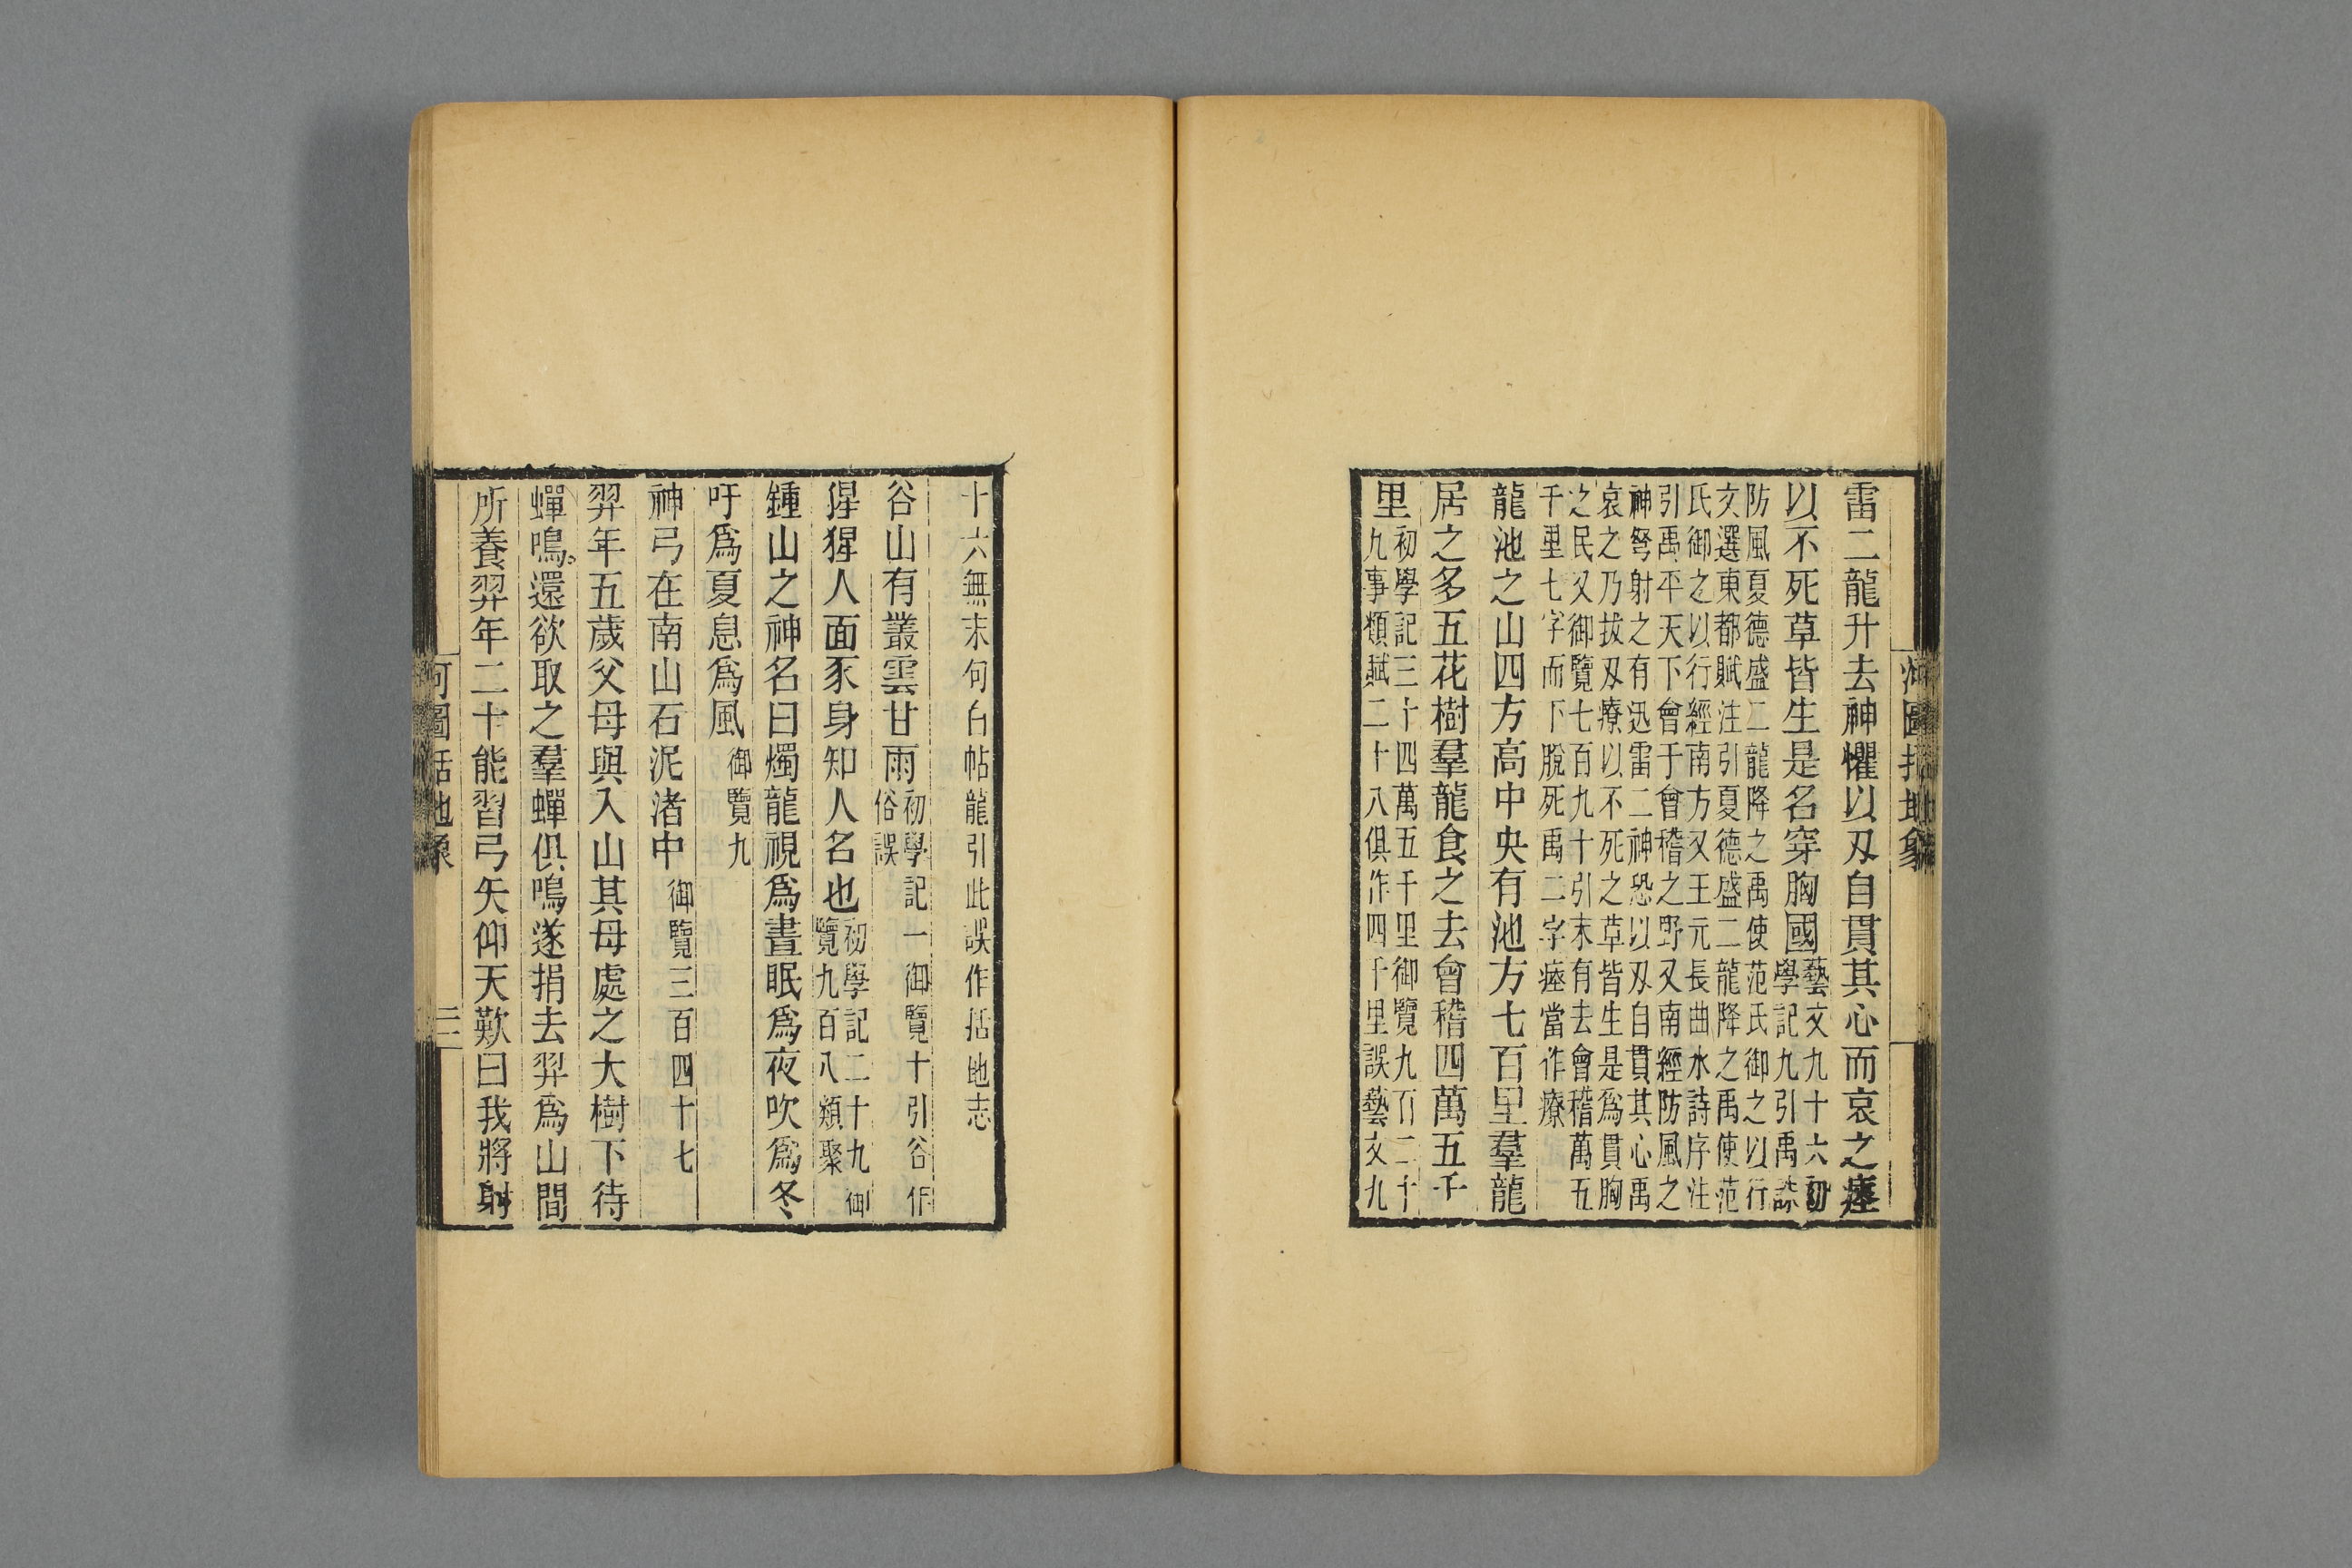 河圖括地象
雷二龍升去神懼以刄自貫其心而哀之瘞
以不死草皆生是名穿胸國藝文九十六初
學記九引禹誅
防風夏德盛二龍降之禹使范氏御之以行
文選東都賦注引夏德盛二龍降之禹使范
氏御之以行經南方又王元長曲水詩序注
引禹平天下會于會稽之野又南經防風之
神弩射之有迅雷二神恐以刄自貫其心禹
哀之乃拔刄療以不死之草皆生是爲貫胸
之民又御覽七百九十引末有去會稽萬五
千里七字而下脫死禹二字瘞當作療
龍池之山四方高中央有池方七百里羣龍
居之多五花樹羣龍食之去會稽四萬五千
里初學記三十四萬五千里御覽九百二十
九事類賦二十八俱作四千里誤藝文九
十六無末句白帖龍引此誤作括地志
谷山有叢雲甘雨初學記一御覽十引谷作
俗誤
猩猩人面豕身知人名也初學記二十九御
覽九百八類聚
鍾山之神名曰燭龍視爲晝眠爲夜吹爲冬
吁爲夏息爲風御覽九
神弓在南山石泥渚中御覽三百四十七
羿年五歲父母與入山其母處之大樹下待
蟬鳴還欲取之羣蟬俱鳴遂捐去羿爲山間
所養羿年二十能習弓矢仰天歎曰我將射
河圖括地象